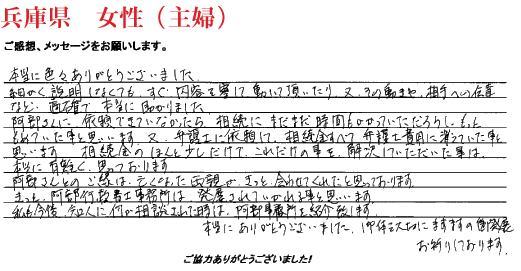 兵庫県　女性（主婦）
ご感想、メッセージをお願いします。
本当に色々ありがとうございました。
細かく説明しなくても、すぐ内容を察して動いて頂いたり、又、その動きや、相手への仕草
など、適確で本当に助かりました。
阿部さんに依頼できていなかったら、相続にまだまだ時間もかかっていただろうし、もっと
もめていた事と思います。又、弁護士に依頼して、相続金すべて弁護士費用に消えていた事と
思います。相続金のほんと少しだけで、これだけの事を、解決していただいた事は、
本当に有難く思っております。
阿部さんとのご縁は、亡くなった両親が、きっと、会わせてくれたと思っております。
きっと、阿部行政書士事務所は、発展されていかれる事と思います。
私も今後、知人に何か相談された時は、阿部事務所を紹介致します。
本当にありがとうございました。お体を大切に ますますの御発展
お祈りしております。
ご協力ありがとうございました!